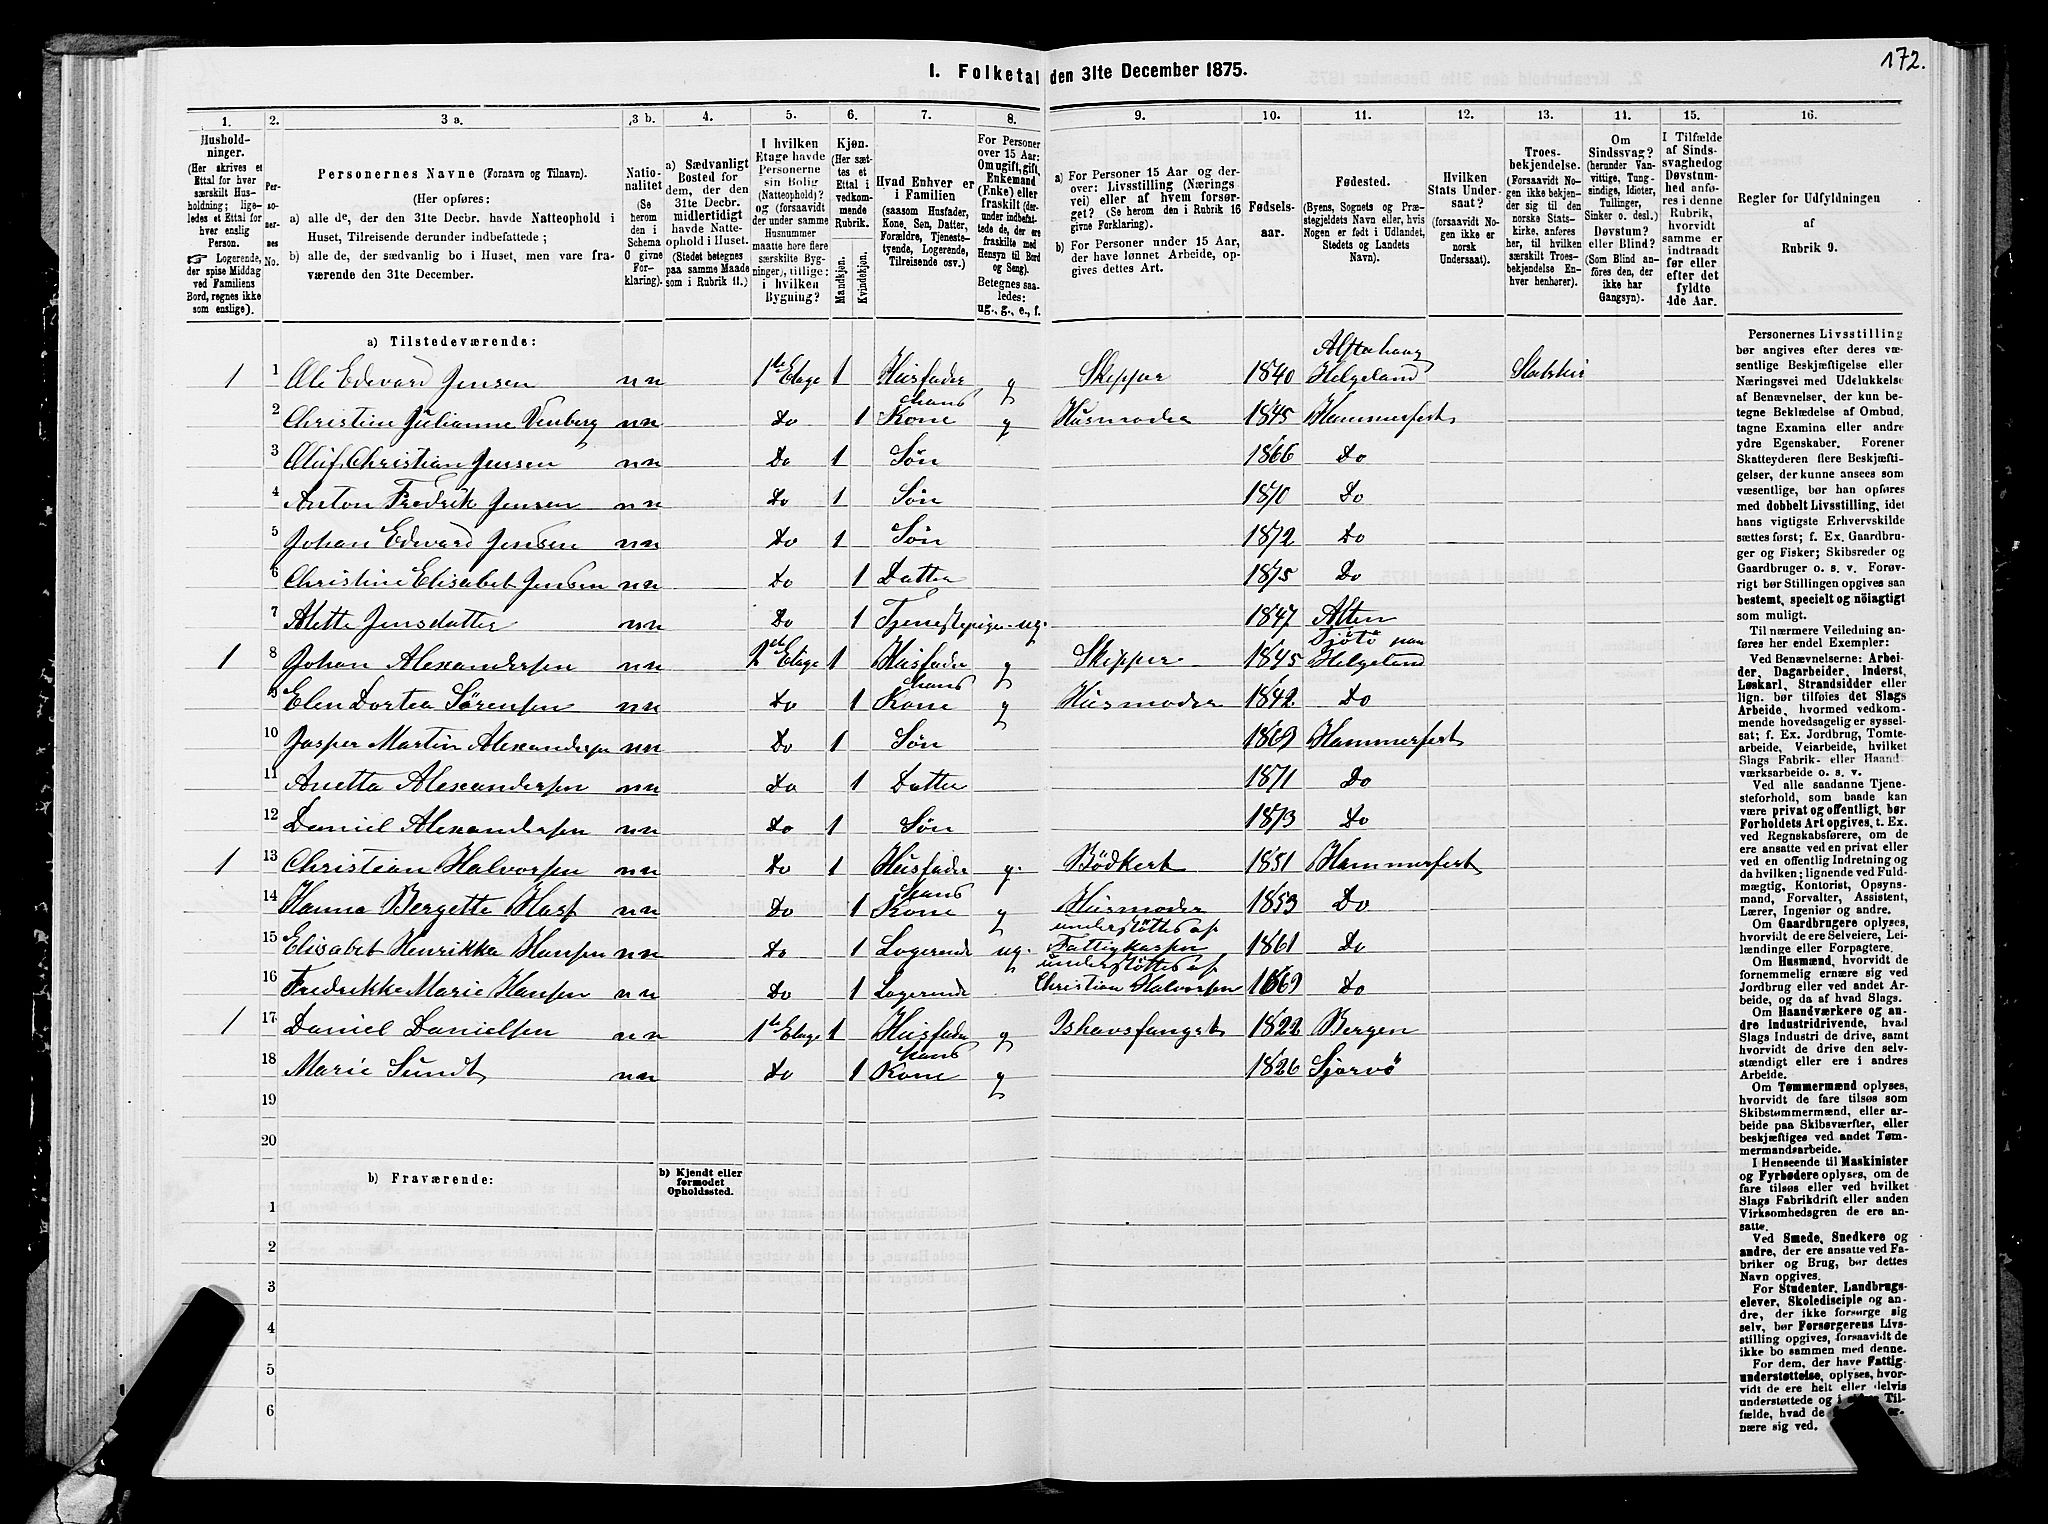 172.
I. Folketal den 31te December 1875.
1. 2. 3 a. 3 b. 4. 5. 6. 7. 8. 9. 10. 11. 12. 13. 11. 15. 16.
Hushold-
ninger.
(Her skrives et
Ettal for hver
særskilt Hus-
holdning; lige-
ledes et Ettal for
hver enslig
Person.
☞ Logerende,
der spise Middag
ved Familiens
Bord, regnes ikke
som enslige).
Per-
so-
ner-
nes
No.
Personernes Navne (Fornavn og Tilnavn).
(Her opføres:
a) alle de, der den 31te Decbr. havde Natteophold i
Huset, Tilreisende derunder indbefattede;
b) alle de, der sædvanlig bo i Huset, men vare fra-
værende den 31te December.
Natio-
nalitet
(Se
herom
den i
Schema
O givne
For-
klaring).
a) Sædvanligt
Bosted for
dem, der den
31te Decbr.
midlertidigt
havde Natte-
ophold i Huset.
(Stedet betegnes
paa samme Maade
som i Rubrik 11.)
I hvilken
Etage havde
Personerne
sin Bolig
(Natteophold)?
og (forsaavidt
der under samme
Husnummer
maatte høre flere
særskilte Byg-
ninger), tillige:
i hvilken
Bygning?
Kjøn.
(Her sæt-
tes et
Ettal i
vedkom-
mende
Rubrik.
Mandkjøn.
Kvindekjøn.
Hvad Enhver er
i Familien
(saasom Husfader,
Kone, Søn, Datter,
Forældre, Tjeneste-
tyende, Logerende,
Tilreisende osv.)
For Personer
over 15 Aar:
Om ugift, gift,
Enkemand
(Enke) eller
fraskilt (der-
under indbefat-
tede de, der ere
fraskilte med
Hensyn til Bord
og Seng).
Betegnes saa-
ledes:
ug., g., e., f.
a) For Personer 15 Aar og der-
over: Livsstilling (Nærings-
vei) eller af hvem forsør-
get? (Se herom den i Rubrik 16
givne Forklaring).
b) For Personer under 15 Aar,
der have lønnet Arbeide, op-
gives dettes Art.
Fødsels-
aar.
Fødested.
(Byens, Sognets og Præ-
stegjeldets Navn eller, hvis
Nogen er født i Udlandet,
Stedets og Landets
Navn).
Hvilken
Stats Under-
saat?
(forsaavidt No-
gen ikke er
norsk
Undersaat).
Troes-
bekjendelse.
(Forsaavidt No-
gen ikke bekjen-
der sig til den
norske Stats-
kirke, anføres
her, til hvilken
særskilt Troes-
bekjendelse En-
hver henhører).
Om
Sindssvag?
(herunder Van-
vittige, Tung-
sindige, Idioter,
Tullinger,
Sinker o. desl.)
Døvstum?
eller Blind?
(Som Blind an-
føres den, der
ikke har
Gangsyn).
I Tilfælde
af Sinds-
svaghed og
Døvstum-
hed anfø-
res i denne
Rubrik,
hvorvidt
samme er
indtraadt
før eller
efter det
fyldte
4de Aar.
Regler for Udfyldningen
af
Rubrik 9.
a) Tilstedeværende:
1 1 Ole Edevard Jensen nn 1ste Etage 1 Husfader g Skipper 1840 Alstahaug Helgeland Statskir
2 Christine Julianne Venberg nn Do 1 hans Kone g Husmoder 1845 Hammerfest
3 Oluf Christian Jensen nn Do 1 Søn 1866 Do
4 Anton Fredrik Jensen nn Do 1 Søn 1870 Do
5 Johan Edvard Jensen nn Do 1 Søn 1872 Do
6 Christine Elisabet Jensen nn Do 1 Datter 1875 Do
7 Alette Jensdatter nn Do 1 Tjenestepige ug. 1847 Alten
1 8 Johan Alexandersen nn 2den Etage 1 Husfader g Skipper 1845 Tjötö paa Helgeland
9 Elen Dortea Sørensen nn Do 1 hans Kone g Husmoder 1842 Do
10 Jasper Martin Alexandersen nn Do 1 Søn 1869 Hammerfest
11 Anetta Alexandersen nn Do 1 Datter 1871 Do
12 Daniel Alexandersen nn Do 1 Søn 1873 Do
1 13 Christian Halvorsen nn Do 1 Husfader g. Bödker 1851 Hammerfest
14 Hanna Bergette Hasf nn Do 1 hans Kone g Husmoder 1853 Do
15 Elisabet Henrikka Hansen nn Do 1 Logerende ug. understöttes af Fattigkassen 1861 Do
16 Fredrikke Marie Hansen nn Do 1 Logerende understöttes af Christian Halvorsen 1869 Do
1 17 Daniel Danielsen nn 1ste Etage 1 Husfader g Ishavsfangst 1822 Bergen
18 Marie Sundt nn Do 1 hans Kone g 1826 Skjervö
19
20
b) Fraværende:
b) Kjendt eller
formodet
Opholdssted.
1
2
3
4
5
6
Personernes Livsstilling
bør angives efter deres væ-
sentlige Beskjæftigelse eller
Næringsvei med Udelukkelse
af Benævnelser, der kun be-
tegne Beklædelse af Ombud,
tagne Examina eller andre
ydre Egenskaber. Forener
Skatteyderen flere Beskjæfti-
gelser, der kunne ansees som
væsentlige, bør han opføres
med dobbelt Livsstilling, idet
hans vigtigste Erhvervskilde
sættes først; f. Ex. Gaardbru-
ger og Fisker; Skibsreder og
Gaardbruger o. s. v. Forøv-
rigt bør Stillingen opgives saa
bestemt, specielt og nöiagtigt
som muligt.
Til nærmere Veiledning an-
føres her endel Exempler:
Ved Benævnelserne: Arbei-
der, Dagarbeider, Inderst,
Løskarl, Strandsidder eller
lign. bør tilføies det Slags
Arbeide, hvormed vedkom-
mende hovedsagelig er syssel-
sat; f. Ex. Jordbrug, Tomte-
arbeide, Veiarbeide, hvilket
Slags Fabrik- eller Haand-
værksarbeide o. s. v.
Ved alle saadanne Tjene-
steforhold, som baade kan
være privat og offentligt, bør
Forholdets Art opgives, t. Ex.
ved Regnskabsførere, om de
ere ansatte ved en privat eller
ved en offentlig Indretning og
da hvilken; lignende ved Fuld-
mægtig, Kontorist, Opsyns-
mand, Forvalter, Assistent,
Lærer, Ingeniør og andre.
Om Gaardbrugere oplyses,
hvorvidt de ere Selveiere, Lei-
lændinge eller Forpagtere.
Om Husmænd, hvorvidt de
fornemmelig ernære sig ved
Jordbrug eller ved andet Ar-
beide, og da af hvad Slags.
Om Haandværkere og an-
dre Industridrivende, hvad
Slags Industri de drive, samt
hvorvidt de drive den selv-
stændigt eller ere i andres
Arbeide.
Om Tømmermænd oplyses,
hvorvidt de fare tilsøs som
Skibstømmermænd, eller ar-
beide paa Skibsværfter, eller
beskjæftiges ved andet Tøm-
mermandsarbeide.
I Henseende til Maskinister
og Fyrbødere oplyses, om de
fare tilsøs eller ved hvilket
Slags Fabrikdrift eller anden
Virksomhedsgren de ere an-
satte.
Ved Smede, Snedkere og
andre, der ere ansatte ved Fa-
briker og Brug, bør dettes
Navn opgives.
For Studenter, Landbrugs-
elever, Skoledisciple og an-
dre, der ikke forsørge sig
selv, bør Forsørgerens Livs-
stilling opgives, forsaavidt de
ikke bo sammen med denne.
For dem, der have Fattig-
understøttelse, oplyses, hvor-
vidt de ere helt eller delvis
understøttede og i Til-
fælde, hvad de er-
nære sig ved.